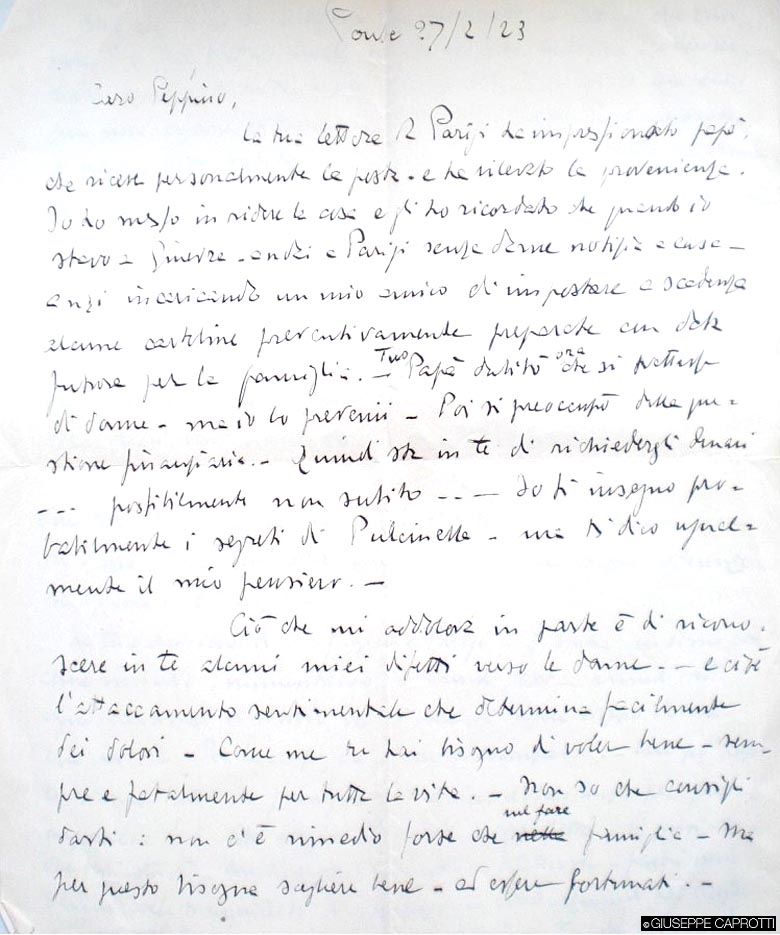 Ponte 27/2/23
Caro Peppino,
la tua lettera di Parigi ha impressionato papà,
che riceve personalmente la posta - e ha rilevato la provenienza.
Io ho messo in ridere la cosa e gli ho ricordato che quando io
stavo a Ginevra - andai a Parigi senza darne notizia a casa -
anzi incaricando un mio amico di impostare a scadenza
alcune cartoline preventivamente preparate con data
futura per la famiglia. - Tuo Papà dubitò ora che si trattasse
di donne - ma io lo prevenni - Poi si preoccupò della que-
stione finanziaria. - Quindi sta in te di richiedergli denari
--- possibilmente non subito -- - Io ti insegno pro-
babilmente i segreti di Pulcinella - ma ti dico ugual-
mente il mio pensiero. -
Ciò che mi addolora in parte è di ricono-
scere in te alcuni miei difetti verso le donne - - e cioè
l'attaccamento sentimentale che determina facilmente
dei dolori - Come me tu hai bisogno di voler bene - sem-
pre e fatalmente per tutta la vita. - Non so che consigli
darti : non c'è rimedio forse che nel fare famiglia - Ma
per questo bisogna scegliere bene - ed essere fortunati. -
© GIUSEPPE CAPROTTI